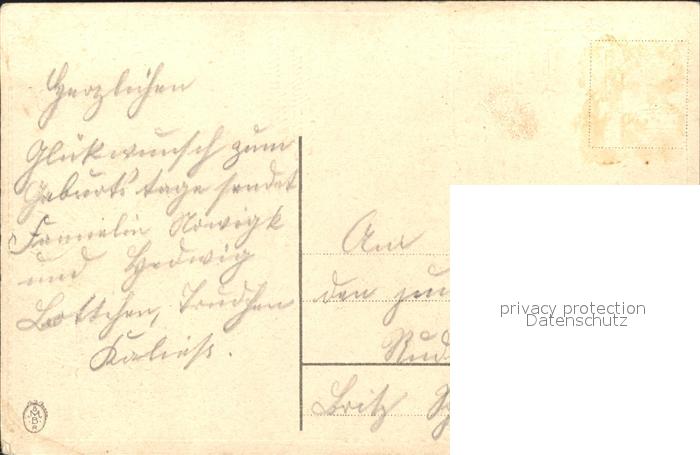 Herzlichen
Glükwunsch zum
Geburtstage sendet
Familie Nowigk
und Hedwig
Lottchen, Trudchen
Kaließ.
An
den
Rud
Britz
privacy protection
Datenschutz